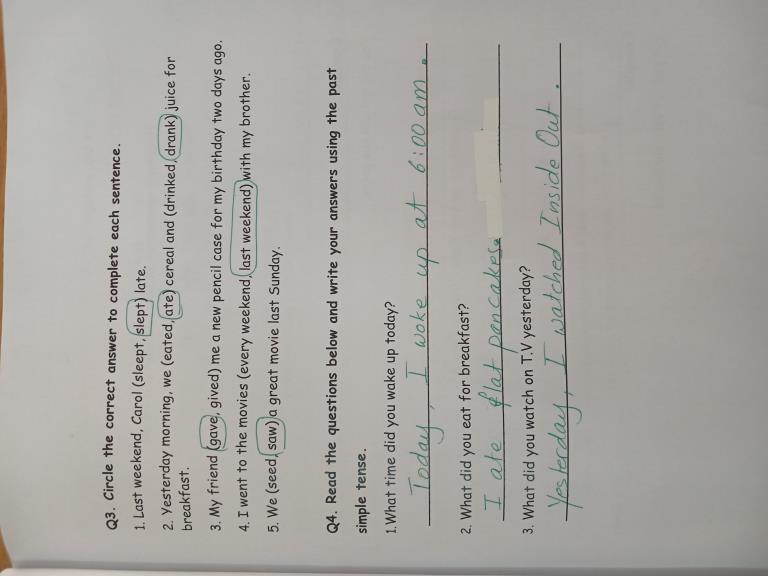 Q3. Circle the correct answer to complete each sentence.
1. Last weekend, Carol (sleept, slept) late.
2. Yesterday morning, we (eated, ate) cereal and (drinked, drank) juice for
breakfast.
3. My friend (gave, gived) me a new pencil case for my birthday two days ago.
4. I went to the movies (every weekend, last weekend) with my brother.
5. We (seed, saw) a great movie last Sunday.
Q4. Read the questions below and write your answers using the past
simple tense.
1.What time did you wake up today?
Today, I woke up at 6:00 am.
2. What did you eat for breakfast?
I ate flat pancakes.
3. What did you watch on T.V yesterday?
Yesterday, I watched Inside Out.